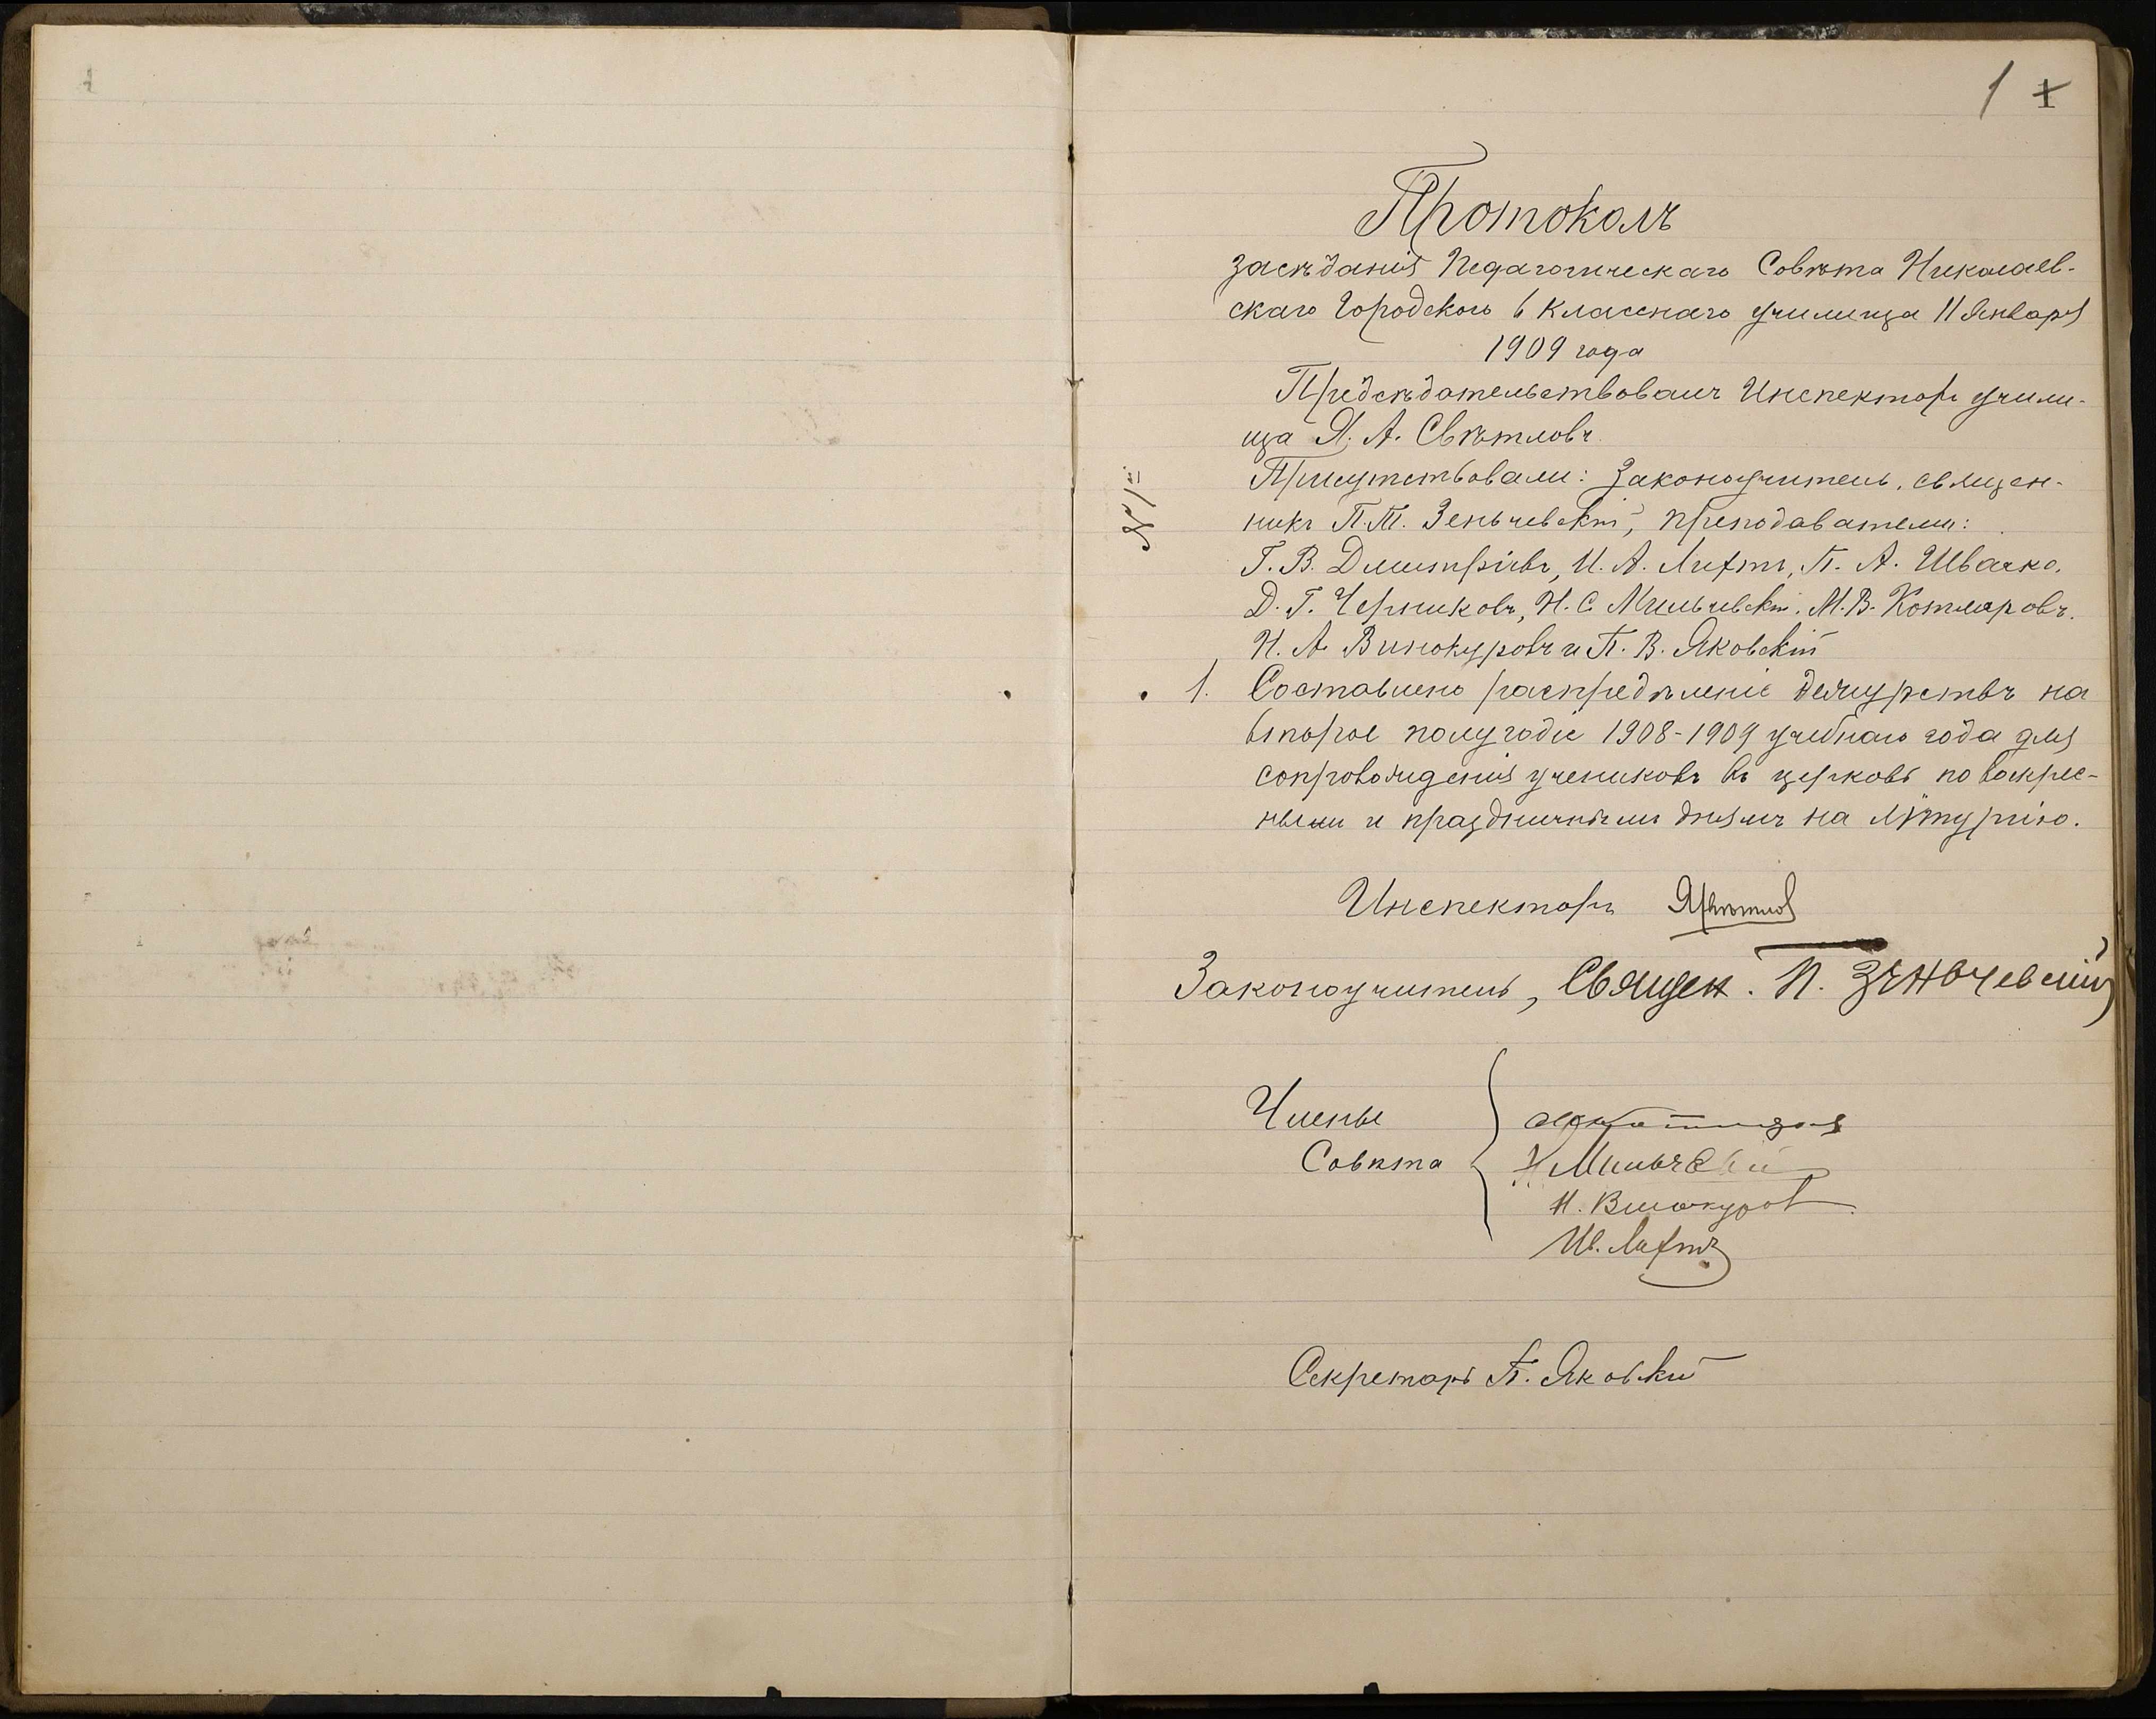 1 1
Протоколъ
засѣданія Педагогическаго Совѣта Николаев-
скаго Городского 6 класснаго училища 11 Января
1909 года
Предсѣдательствовалъ Инспекторъ учили-
ща Я. А. Свѣтловъ.
Присутствовали: Законоучитель, священ-
никъ П. М. Зеньчевскій, преподаватели:
Г. В. Дмитріевъ, И. А. Лихтъ, П. А. Швачко,
Д. Г. Черниковъ, Н. С. Мильчевскій, М. В. Котляровъ,
Н. А. Винокуровъ и П. В. Яковскій
№ 1й
1. Составлено распредѣленіе дежурствъ на
второе полугодіе 1908-1909 учебнаго года для
сопровожденія учениковъ въ церковь по воскрес-
нымъ и праздничнымъ днямъ на литургію.
Инспекторъ ЯСвѣтлов
Законоучитель, Священ. П. Зеньчевскій
Члены
Совѣта
Н Мильчевскій
Н. Винокуров
Ив. Лихтъ
Секретарь П. Яковскій